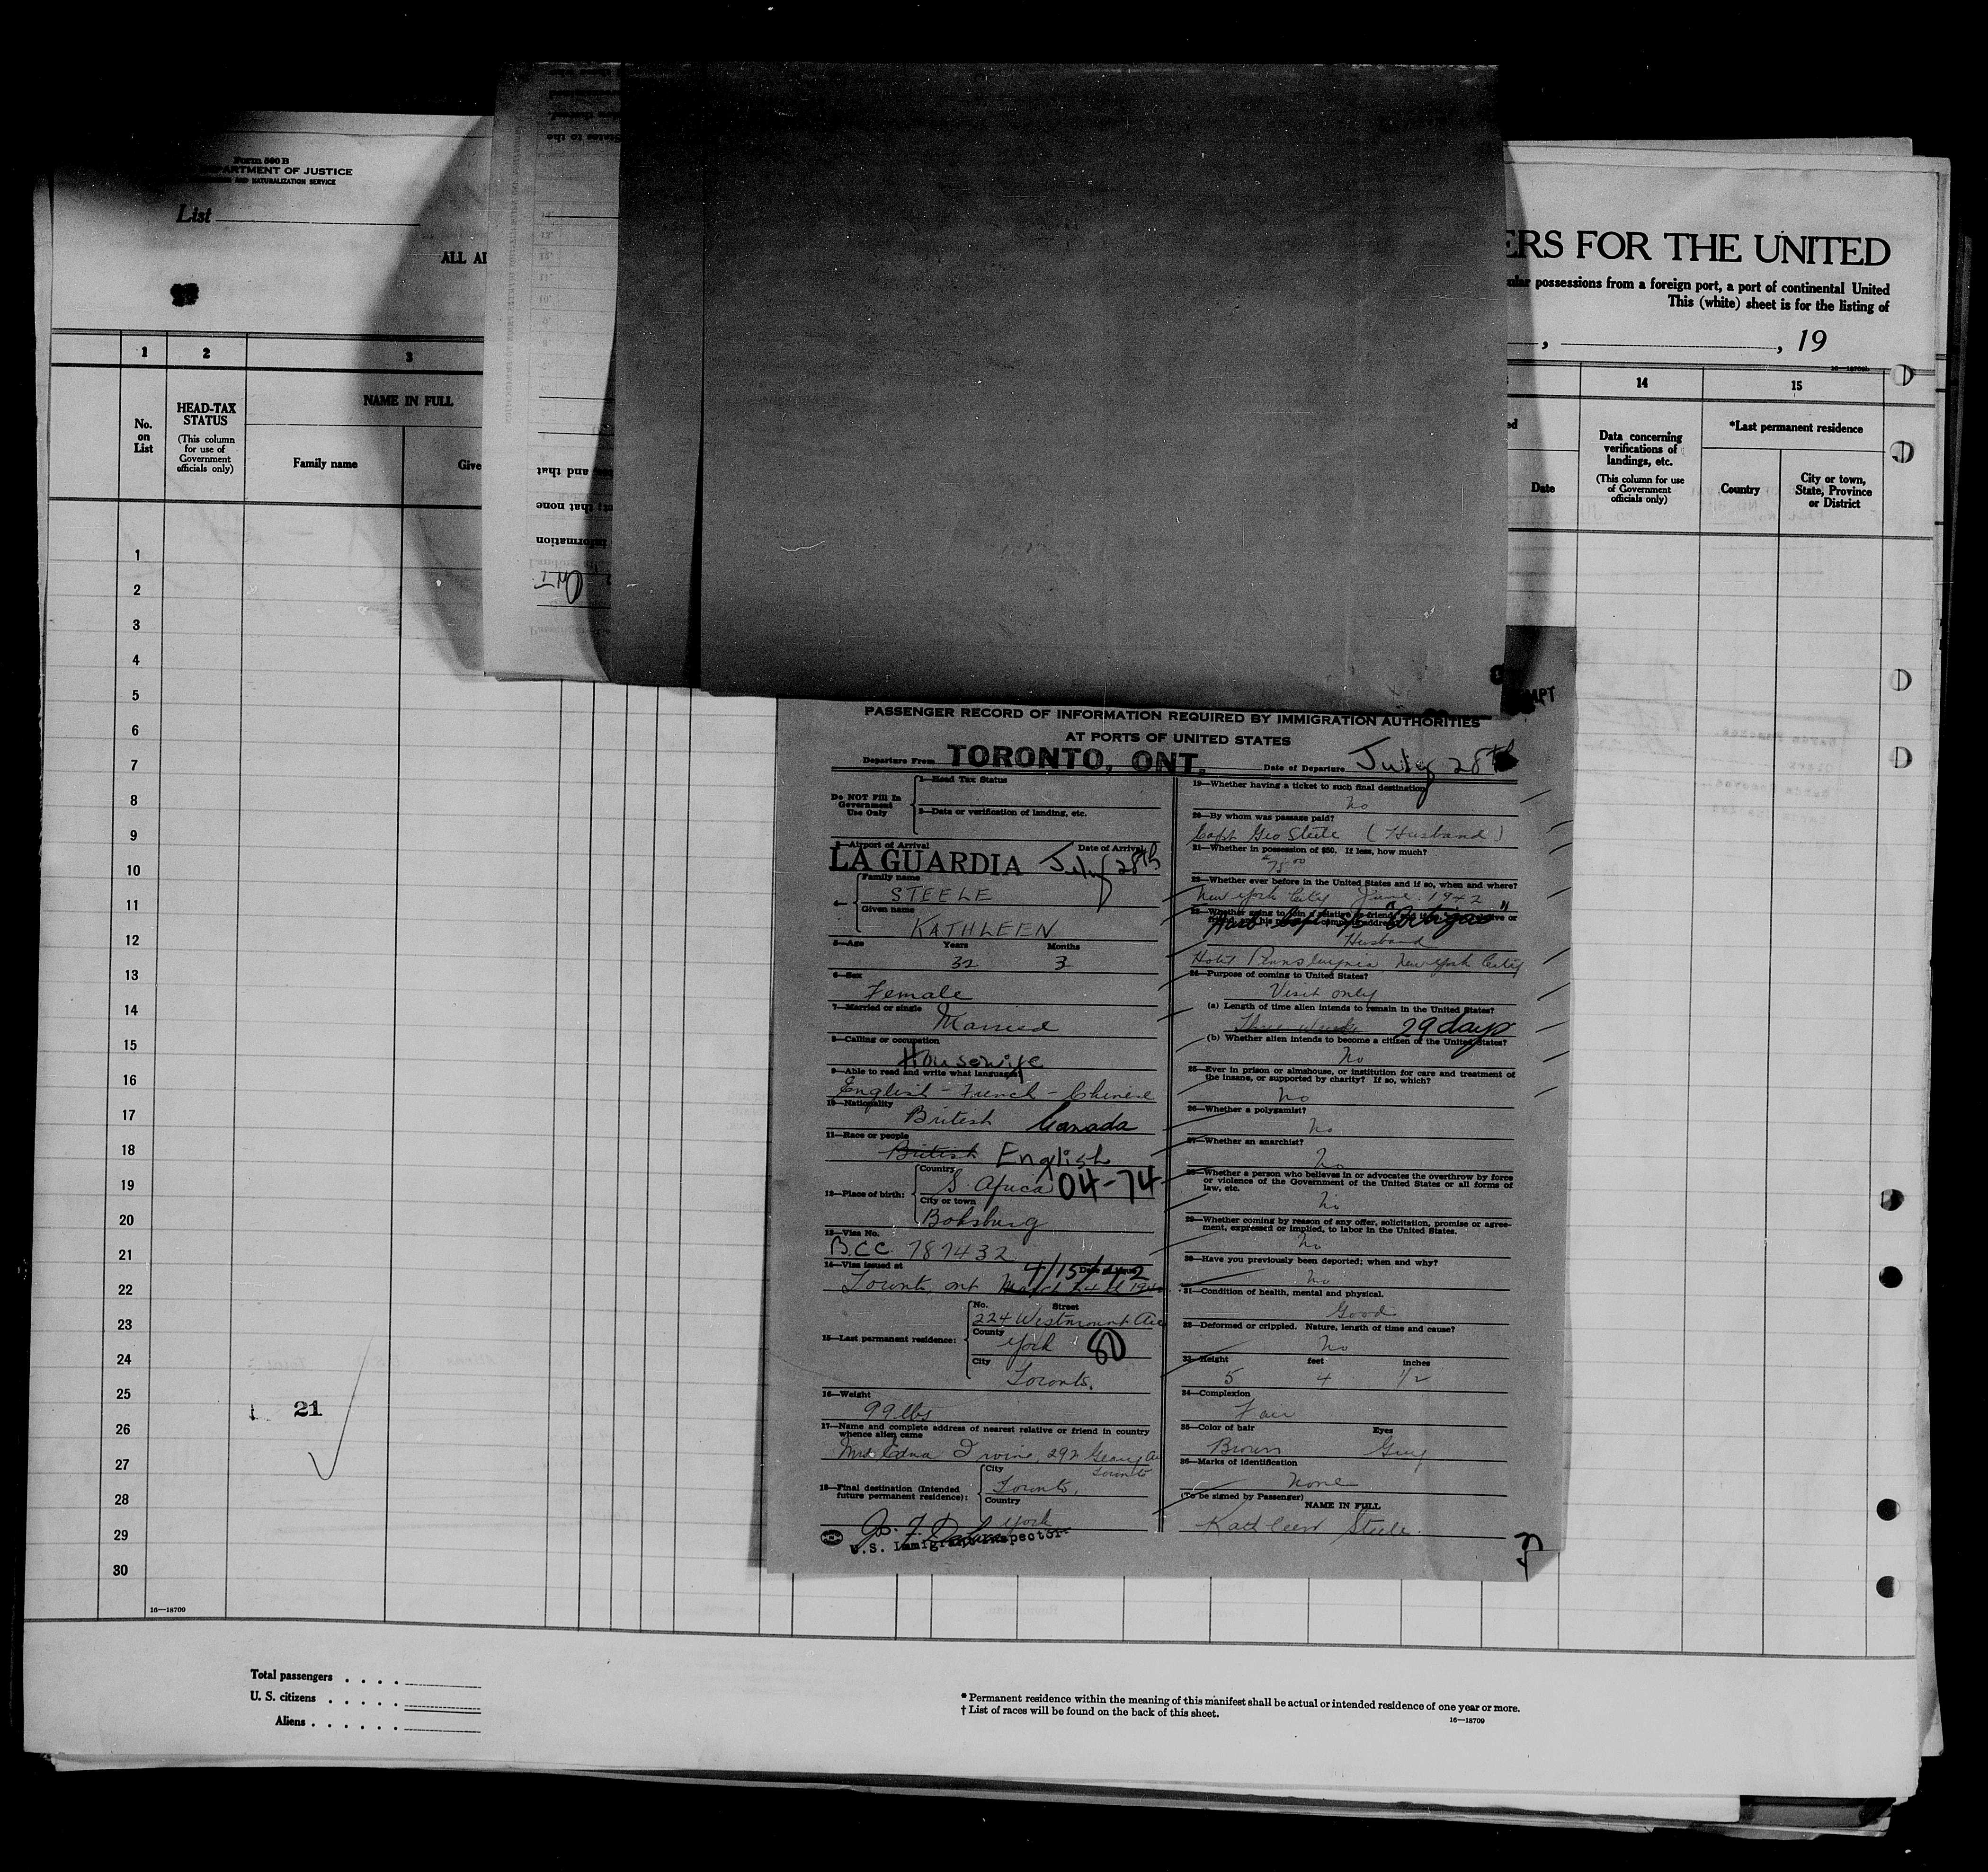 Form 500 B
DEPARTMENT OF JUSTICE
AND NATURALIZATION SERVICE
List
ALL
ERS FOR THE UNITED
possessions from a foreign port, a port of continental United
This (white) sheet is for the listing of
, , 19
1 2 3 14 15
No. on List
HEAD-TAX STATUS
(This column for use of Government officials only)
NAME IN FULL
Family name
Date
Data concerning verifications of landings, etc.
(This column for use of Government officials only)
*Last permanent residence
Country
City or town, State, Province or District
1
2
3
4
5
6
7
8
9
10
11
12
13
14
15
16
17
18
19
20
21
22
23
24
25
21
26
27
28
29
30
16—18709
PASSENGER RECORD OF INFORMATION REQUIRED BY IMMIGRATION AUTHORITIES
AT PORTS OF UNITED STATES
Departure From TORONTO, ONT. Date of Departure July 28th
Do NOT Fill In
Government
Use Only
1—Head Tax Status
2—Data or verification of landing, etc.
3—Airport of Arrival Date of Arrival
LA GUARDIA July 28th
4—
Family name
STEELE
Given name
KATHLEEN
5—Age Years Months
32 3
6—Sex
Female
7—Married or single
Married
8—Calling or occupation
Housewife
9—Able to read and write what language
English - French - Chinese
10—Nationality
British Canada
11—Race or people
British English
12—Place of birth:
Country
S. Africa 04-74
City or town
Boksburg
13—Visa No.
B.C.C. 787432
14—Visa issued at
4/15/42
Toronto, ont March
15—Last permanent residence:
No. Street
224 Westmount Ave
County
York 80
City
Toronto.
16—Weight
99 lbs
17—Name and complete address of nearest relative or friend in country
whence alien came
Mrs Edna Irvine, 292
Toronto
18—Final destination (Intended
future permanent residence):
City
Toronto,
Country
York
U.S. Immigrant Inspector
19—Whether having a ticket to such final destination
No
20—By whom was passage paid?
Capt Geo Steele (Husband)
21—Whether in possession of $50. If less, how much?
$75.00
22—Whether ever before in the United States and if so, when and where?
New York City June 1942
Husband
Hotel Pennsylvania New York City
24—Purpose of coming to United States?
Visit only
(a) Length of time alien intends to remain in the United States?
Three weeks 29 days
(b) Whether alien intends to become a citizen of the United States?
No
25—Ever in prison or almshouse, or institution for care and treatment of
the insane, or supported by charity? If so, which?
No
26—Whether a polygamist?
No
27—Whether an anarchist?
No
28—Whether a person who believes in or advocates the overthrow by force
or violence of the Government of the United States or all forms of
law, etc.
No
29—Whether coming by reason of any offer, solicitation, promise or agree-
ment, expressed or implied, to labor in the United States.
No
30—Have you previously been deported; when and why?
No
31—Condition of health, mental and physical.
Good
32—Deformed or crippled. Nature, length of time and cause?
No
33—Height feet inches
5 4 1/2
34—Complexion
Fair
35—Color of hair Eyes
Brown Grey
36—Marks of identification
None
(To be signed by Passenger)
NAME IN FULL
Kathleen Steele.
Total passengers . . . .
U. S. citizens . . . . .
Aliens . . . . . .
* Permanent residence within the meaning of this manifest shall be actual or intended residence of one year or more.
† List of races will be found on the back of this sheet.
16—18709